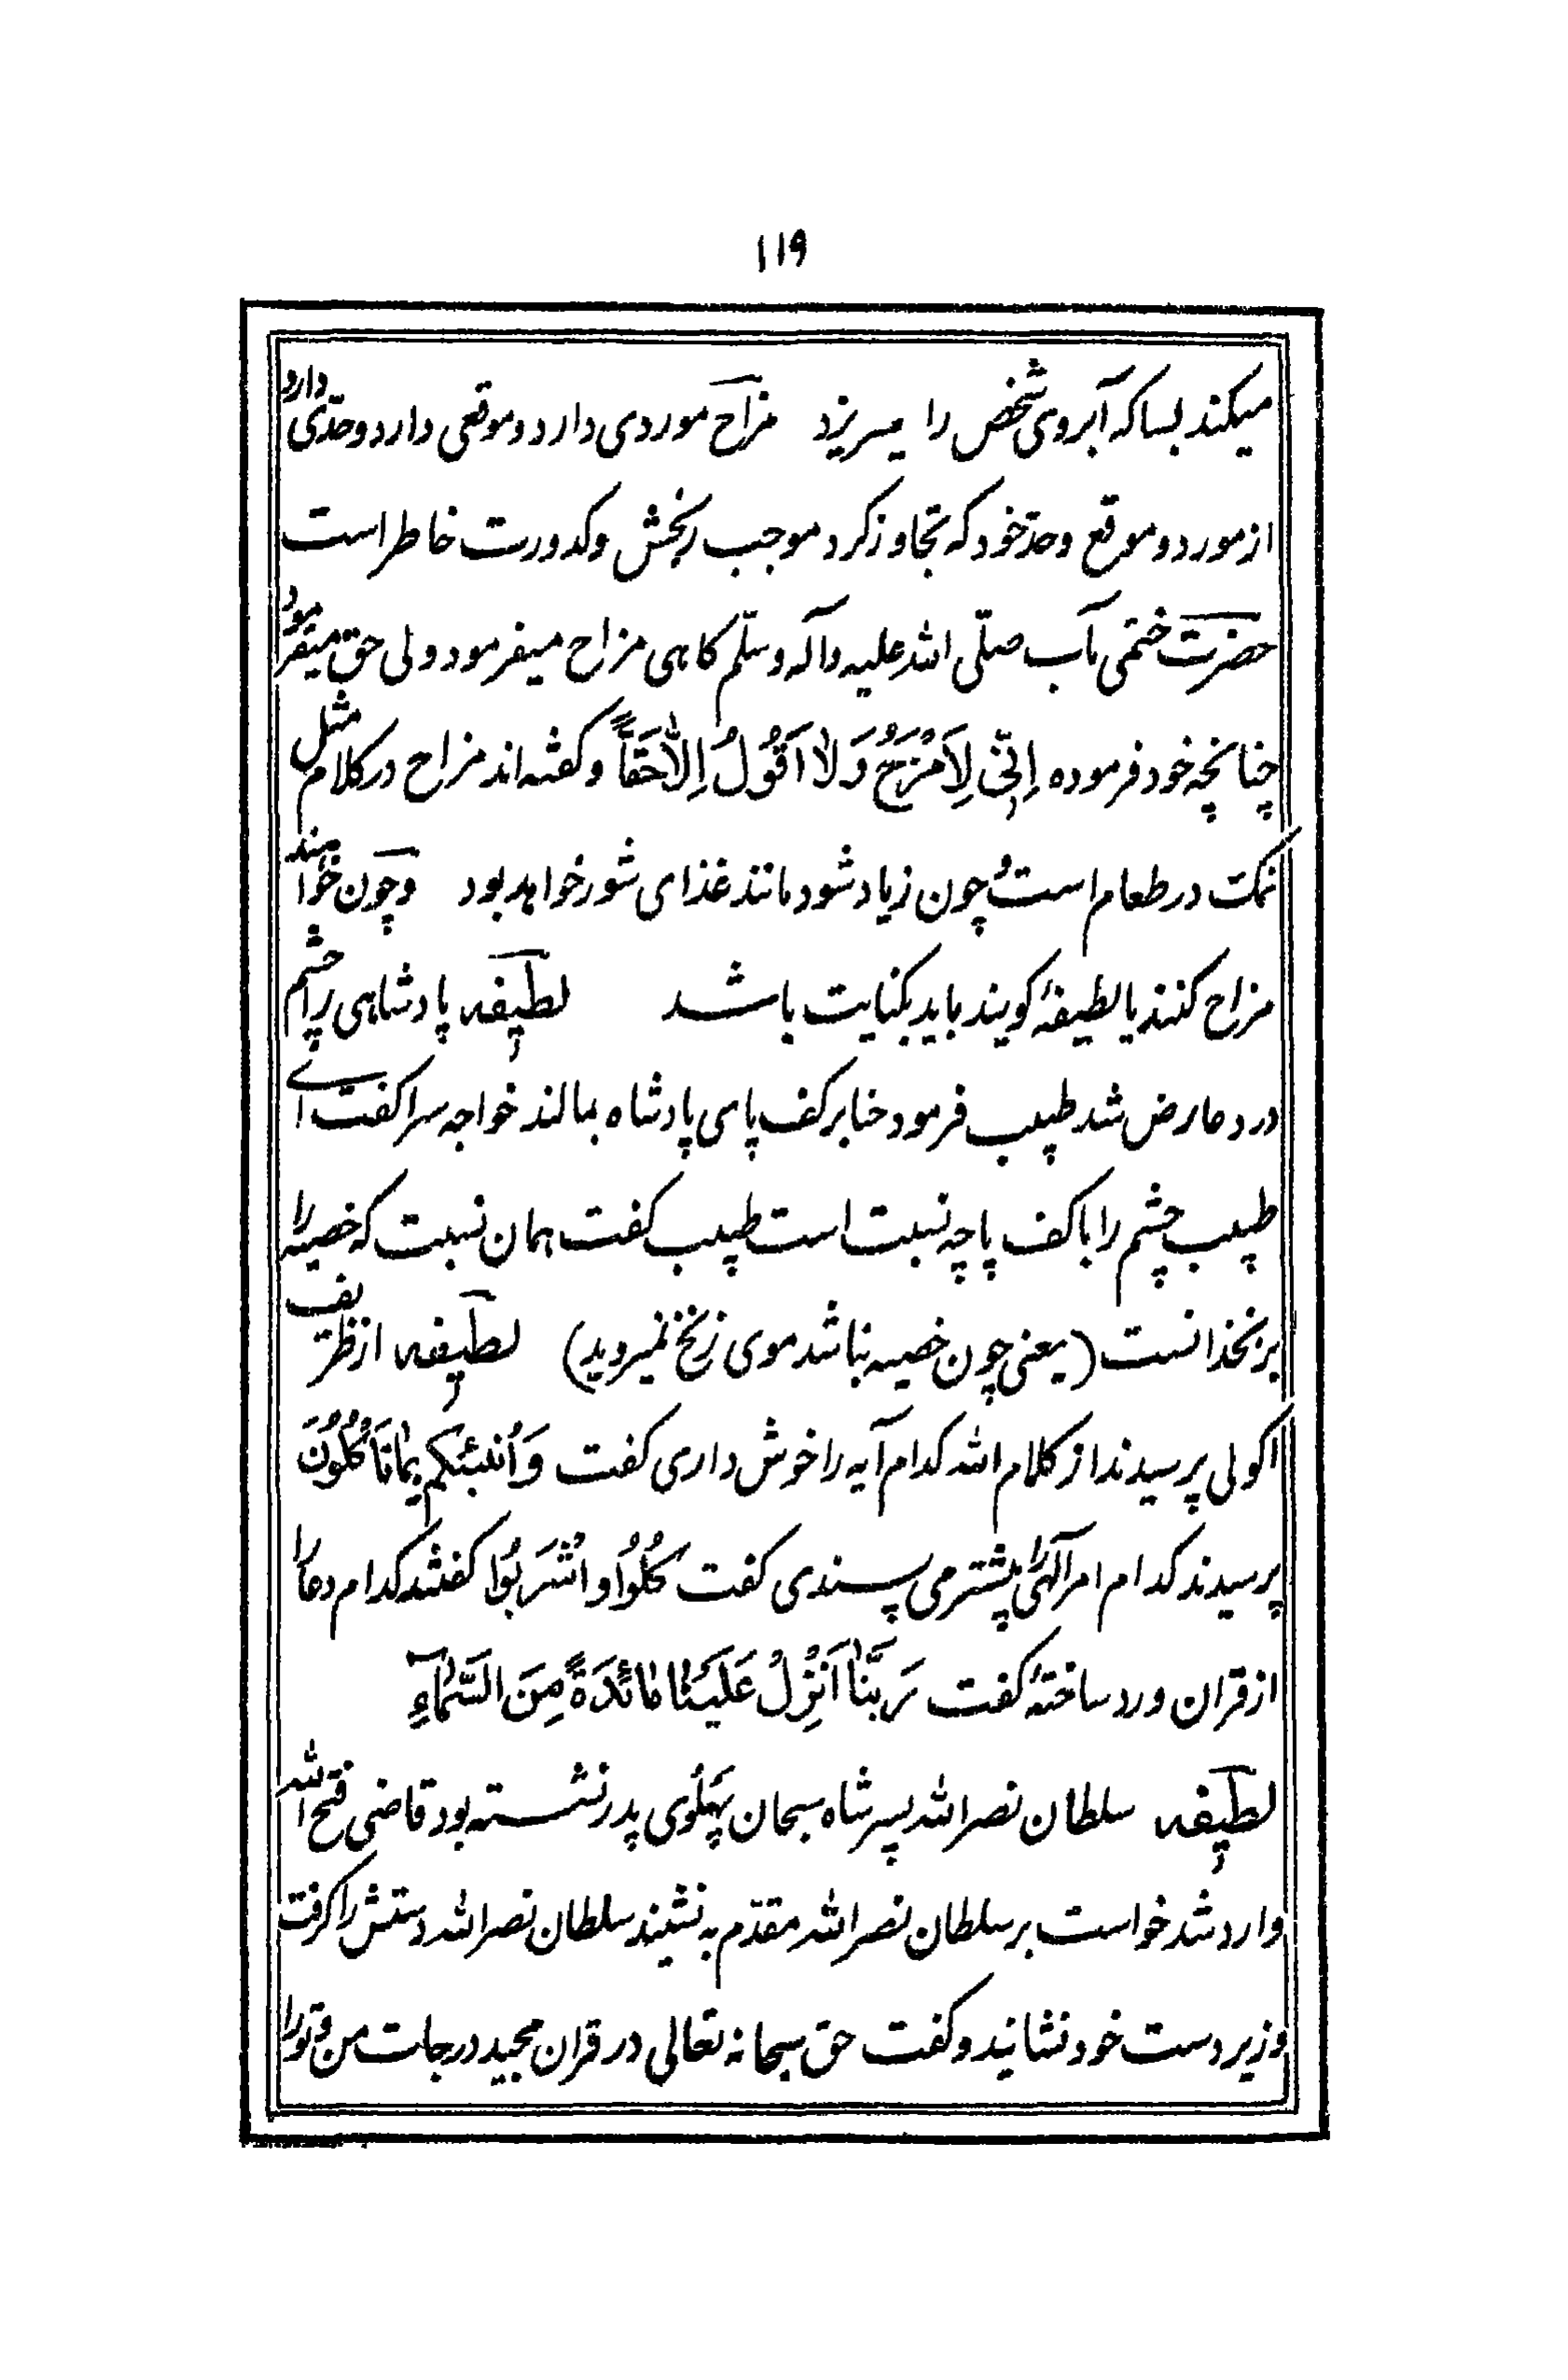 ۱۱۹
میکند بساکه آبروی شخص را میریزد مزاح موردی دارد وموقعی دارد وحدّی دارد
از مورد وموقع وحدّ خود که تجاوز کرد موجب رنجش وکدورت خاطر است
حضرت ختمی مآب صلّی الله علیه وآله وسلّم کاهی مزاح میفرمود ولی حق میفرمود
چنانچه خود فرموده اِنّی لَاَمْزَحُ وَلا اَقُولُ اِلاّحَقّاً وکفته اند مزاح در کلام مثل
نمک در طعام است چون زیاد شود مانند غذای شور خواهد بود وچون خواهند
مزاح کنند یا لطیفهٔ کویند باید بکنایت باشد لطیفه پادشاهی را چشم
درد عارض شد طبیب فرمود حنا بر کف پای پادشاه بمالند خواجه سرا کفت ای
طبیب چشم را با کف پا چه نسبت است طبیب کفت همان نسبت که خصیه را
بزنخدانست (یعنی چون خصیه نباشد موی زنخ نمیروید) لطیفه از ظریف
اکولی پرسیدند از کلام الله کدام آیه را خوش داری کفت وَاُنَبِّئُکُم بِمٰا تَاْکُلُونَ
پرسیدند کدام امر آلهی را بیشتر می پسندی کفت کُلُوا وَاشْرَبُوا کفتند کدام دعا را
از قران ورد ساختهٔ کفت رَبَّنٰا اَنْزِلْ عَلَیْنٰا مٰائِدَةً مِنَ السَّمٰآءِ
لطیفه سلطان نصرالله پسر شاه سبحان پهلوی پدر نشسته بود قاضی فتح الله
وارد شد خواست بر سلطان نصرالله مقدّم به نشیند سلطان نصرالله دستش را کرفت
وزیر دست خود نشانید وکفت حق سبحانه تعالی در قران مجید درجات من وتو را